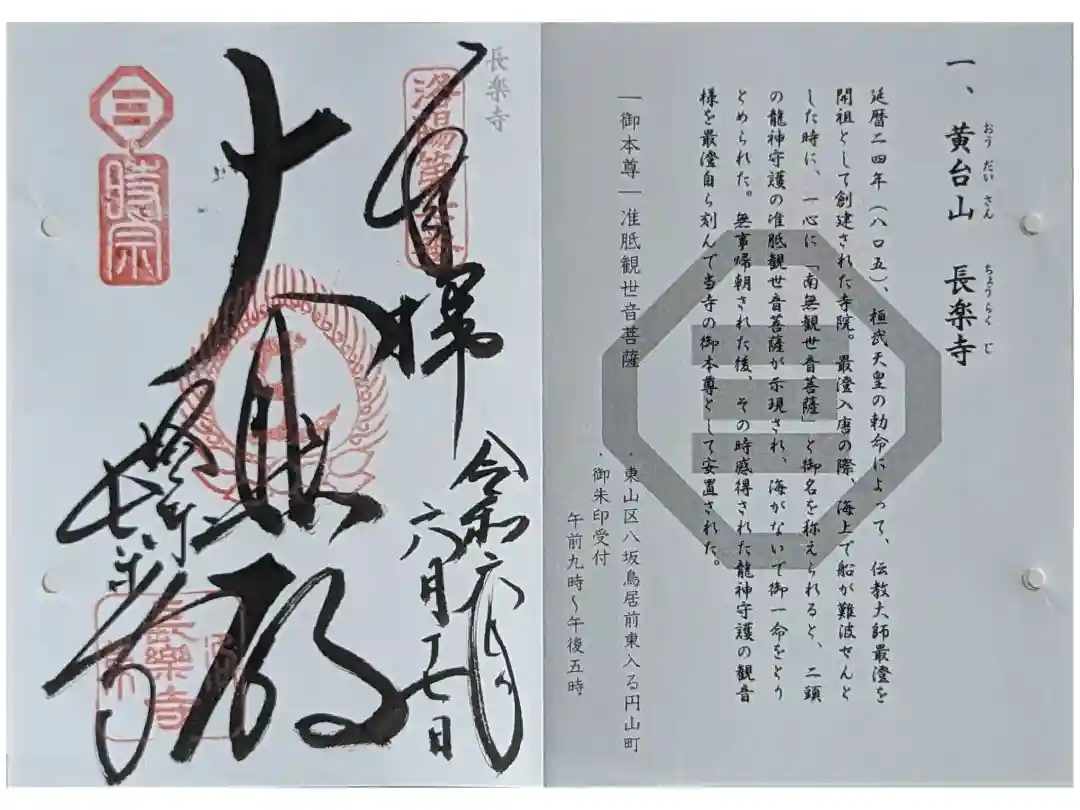 一、黄台山　長楽寺
おうだいさん　ちょうらくじ
延暦二四年（八〇五）、桓武天皇の勅命によって、伝教大師最澄を
開祖として創建された寺院。最澄入唐の際、海上で船が難波せんと
した時に、一心に「南無観世音菩薩」と御名を称えられると、二頭
の龍神守護の准胝観世音菩薩が示現され、海がないで御一命をとり
とめられた。無事帰朝された後、その時感得された龍神守護の観音
様を最澄自ら刻んで当寺の御本尊として安置された。
―御本尊―准胝観世音菩薩
・東山区八坂鳥居前東入る円山町
・御朱印受付
午前九時～午後五時
長楽寺
奉拝
令和六年
六月十七日
大悲殿
時宗
長樂寺